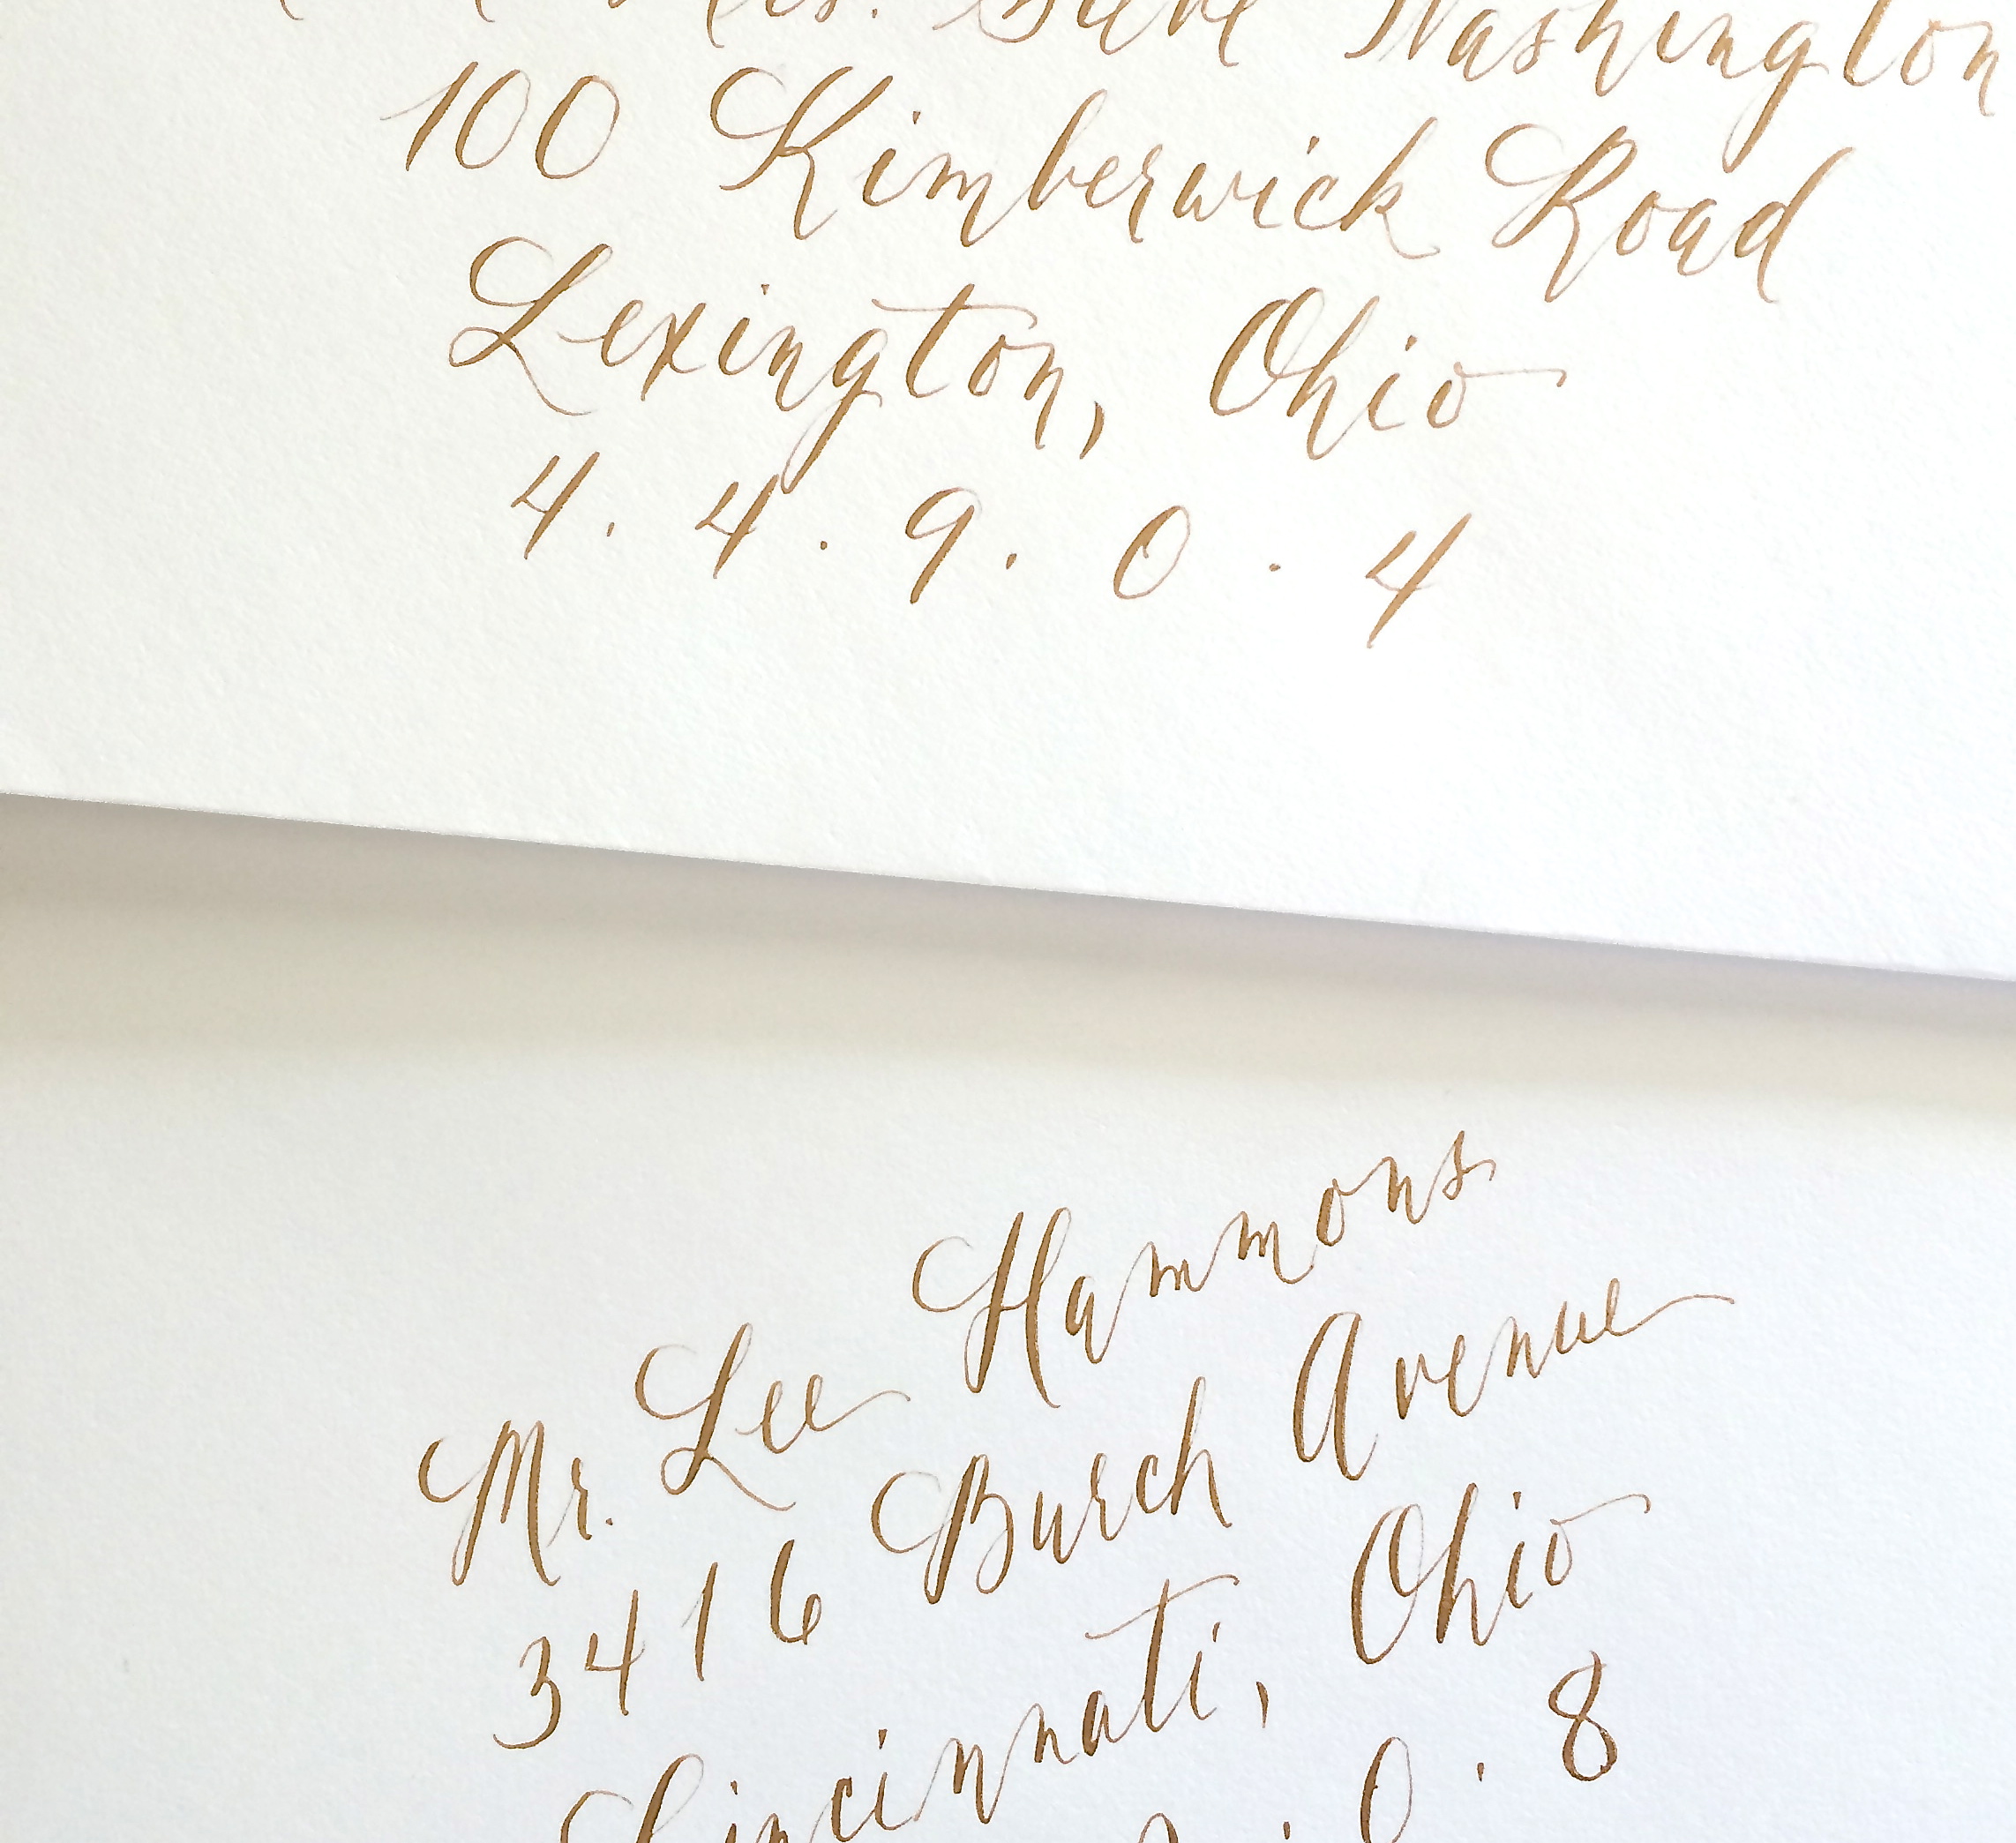 Mrs. Steve Washington
100 Kimberwick Road
Lexington, Ohio
4. 4. 9. 0. 4
Mr. Lee Hammons
3416 Burch Avenue
Cincinnati, Ohio
0. 8